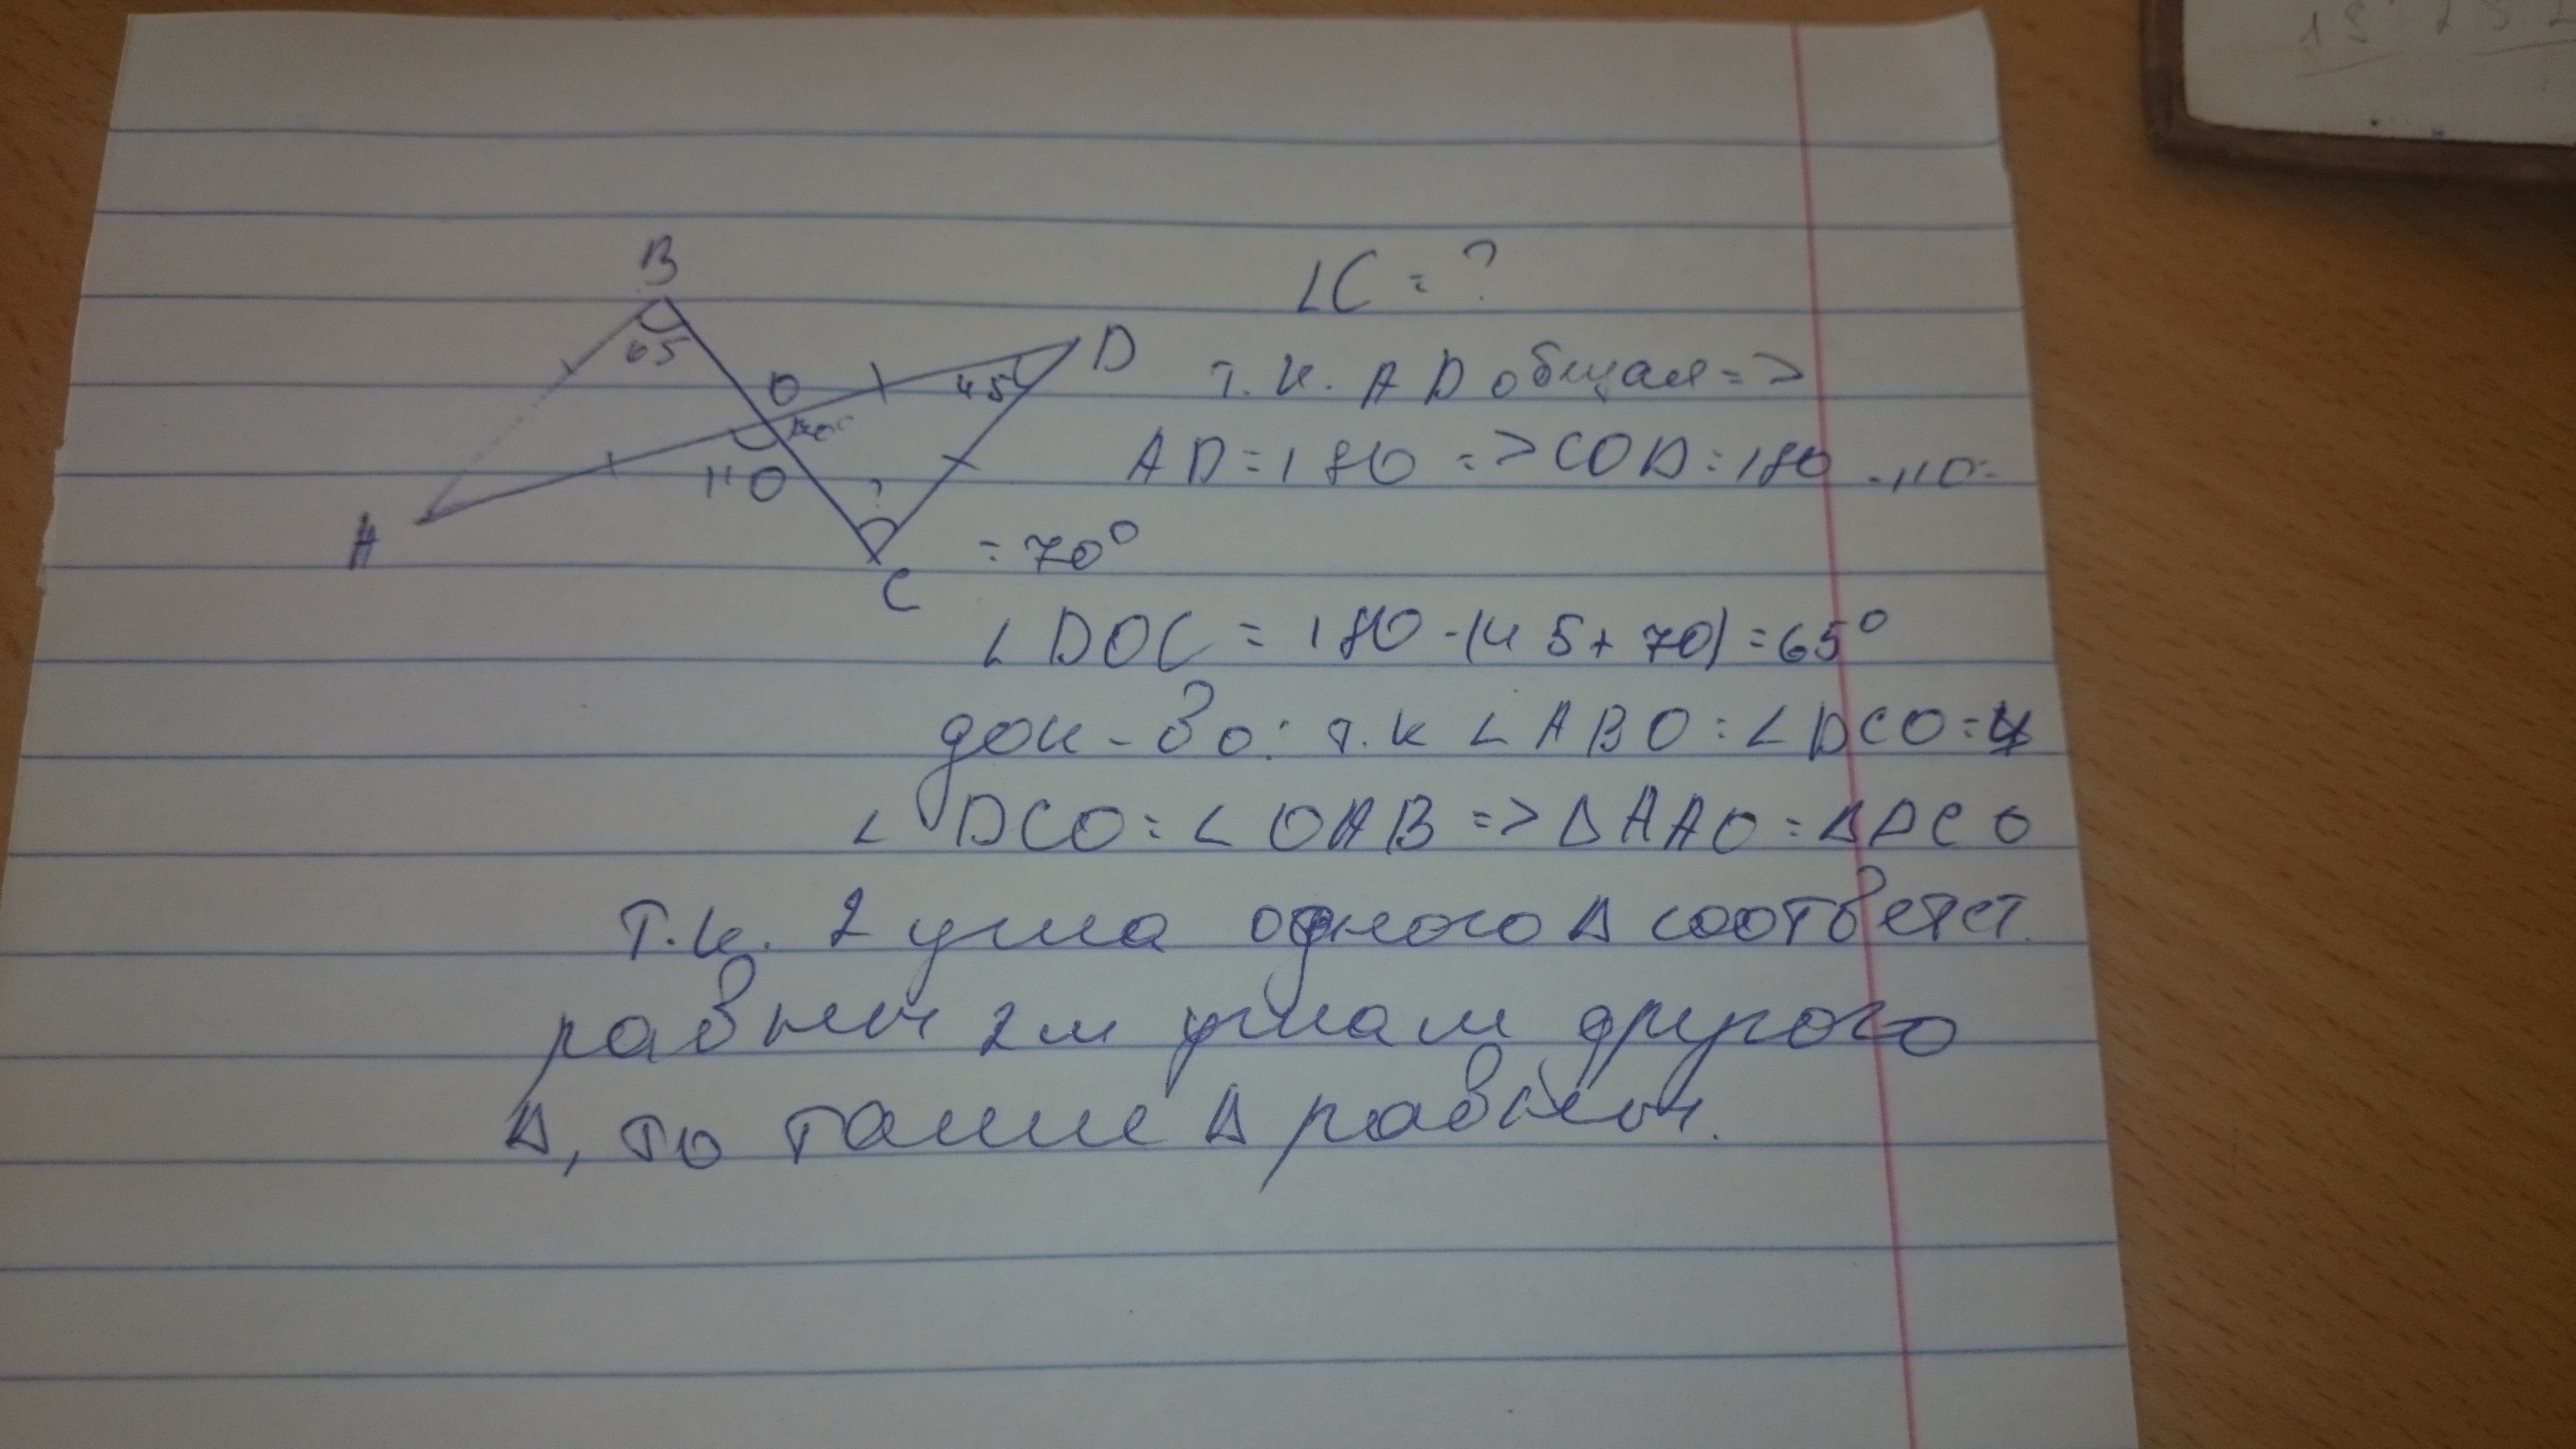 B
65
O
D
45
70°
110
?
A
C
∠C = ?
т.к. AD общая =>
AD = 180 => COD = 180 - 110 =
= 70°
∠DOC = 180 - (45 + 70) = 65°
док-во: т.к ∠ABO = ∠DCO =
∠DCO = ∠OAB => ΔAAO = ΔDCO
т.к. 2 угла одного Δ соответст.
равны 2м углам другого
Δ, то такие Δ равны.